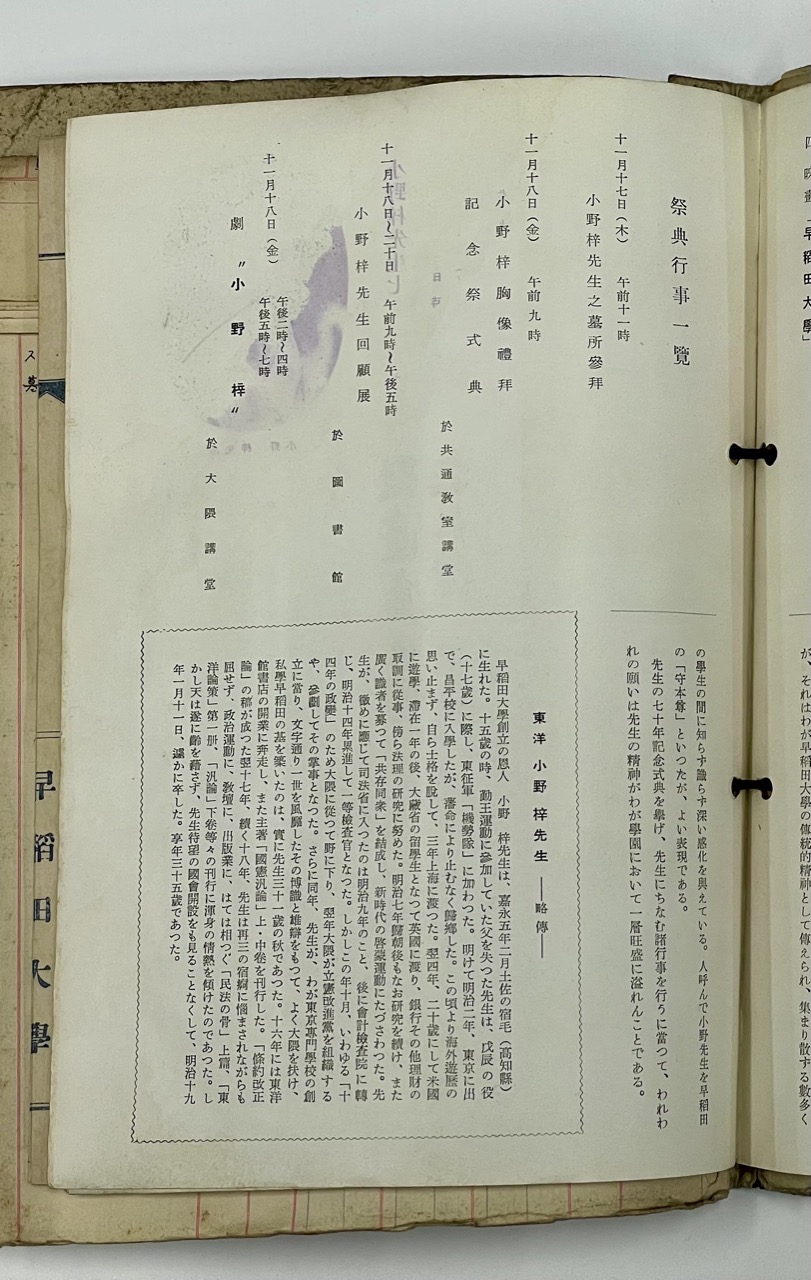 四　映畫「早稻田大學」
が、それはわが早稻田大學の傳統的精神として傳えられ、集まり散ずる數多く
の學生の間に知らず識らず深い感化を與えている。人呼んで小野先生を早稻田
の「守本尊」といつたが、よい表現である。
先生の七十年記念式典を擧げ、先生にちなむ諸行事を行うに當つて、われわ
れの願いは先生の精神がわが學園において一層旺盛に溢れんことである。
祭典行事一覽
十一月十七日（木）　午前十一時
小野梓先生之墓所參拜
十一月十八日（金）　午前九時
小野梓胸像禮拜
記念祭式典
於共通教室講堂
十一月十八日〜二十日　午前九時〜午後五時
小野梓先生回顧展
於圖書館
十一月十八日（金）　午後二時〜四時
午後五時〜七時
劇　〃小野梓〃
於大隈講堂
東洋　小野梓先生　――略傳――
早稻田大學創立の恩人　小野　梓先生は、嘉永五年二月土佐の宿毛（高知縣）
に生れた。十五歲の時、勤王運動に參加していた父を失つた先生は、戊辰の役
（十七歲）に際し、東征軍「機勢隊」に加わつた。明けて明治二年、東京に出
で、昌平校に入學したが、藩命により止むなく歸鄕した。この頃より海外遊歷の
思い止まず、自ら士格を脫して、三年上海に渡つた。翌四年、二十歲にして米國
に遊學、滯在一年の後、大藏省の留學生となつて英國に渡り、銀行その他理財の
取調に從事、傍ら法理の研究に努めた。明治七年歸朝後もなお研究を續け、また
廣く識者を募つて「共存同衆」を結成し、新時代の啓蒙運動にたづさわつた。先
生が、徵めに應じて司法省に入つたのは明治九年のこと、後に會計檢査院に轉
じ、明治十四年累進して一等檢査官となつた。しかしこの年十月、いわゆる「十
四年の政變」のため大隈に從つて野に下り、翌年大隈が立憲改進黨を組織する
や、參劃してその掌事となつた。さらに同年、先生が、わが東京專門學校の創
立に當り、文字通り一世を風靡したその博識と雄辯をもつて、よく大隈を扶け、
私學早稻田の基を築いたのは、實に先生三十一歲の秋であつた。十六年には東洋
館書店の開業に奔走し、また主著「國憲汎論」上・中卷を刊行した。「條約改正
論」の稿が成つた翌十七年、續く十八年、先生は再三の宿痾に惱まされながらも
屈せず、政治運動に、敎壇に、出版業に、はては相つぐ「民法の骨」上篇、「東
洋論策」第一册、「汎論」下卷等々の刊行に渾身の情熱を傾けたのであつた。し
かし天は遂に齡を藉さず、先生待望の國會開設をも見ることなくして、明治十九
年一月十一日、遽かに卒した。享年三十五歲であつた。
早稻田大學